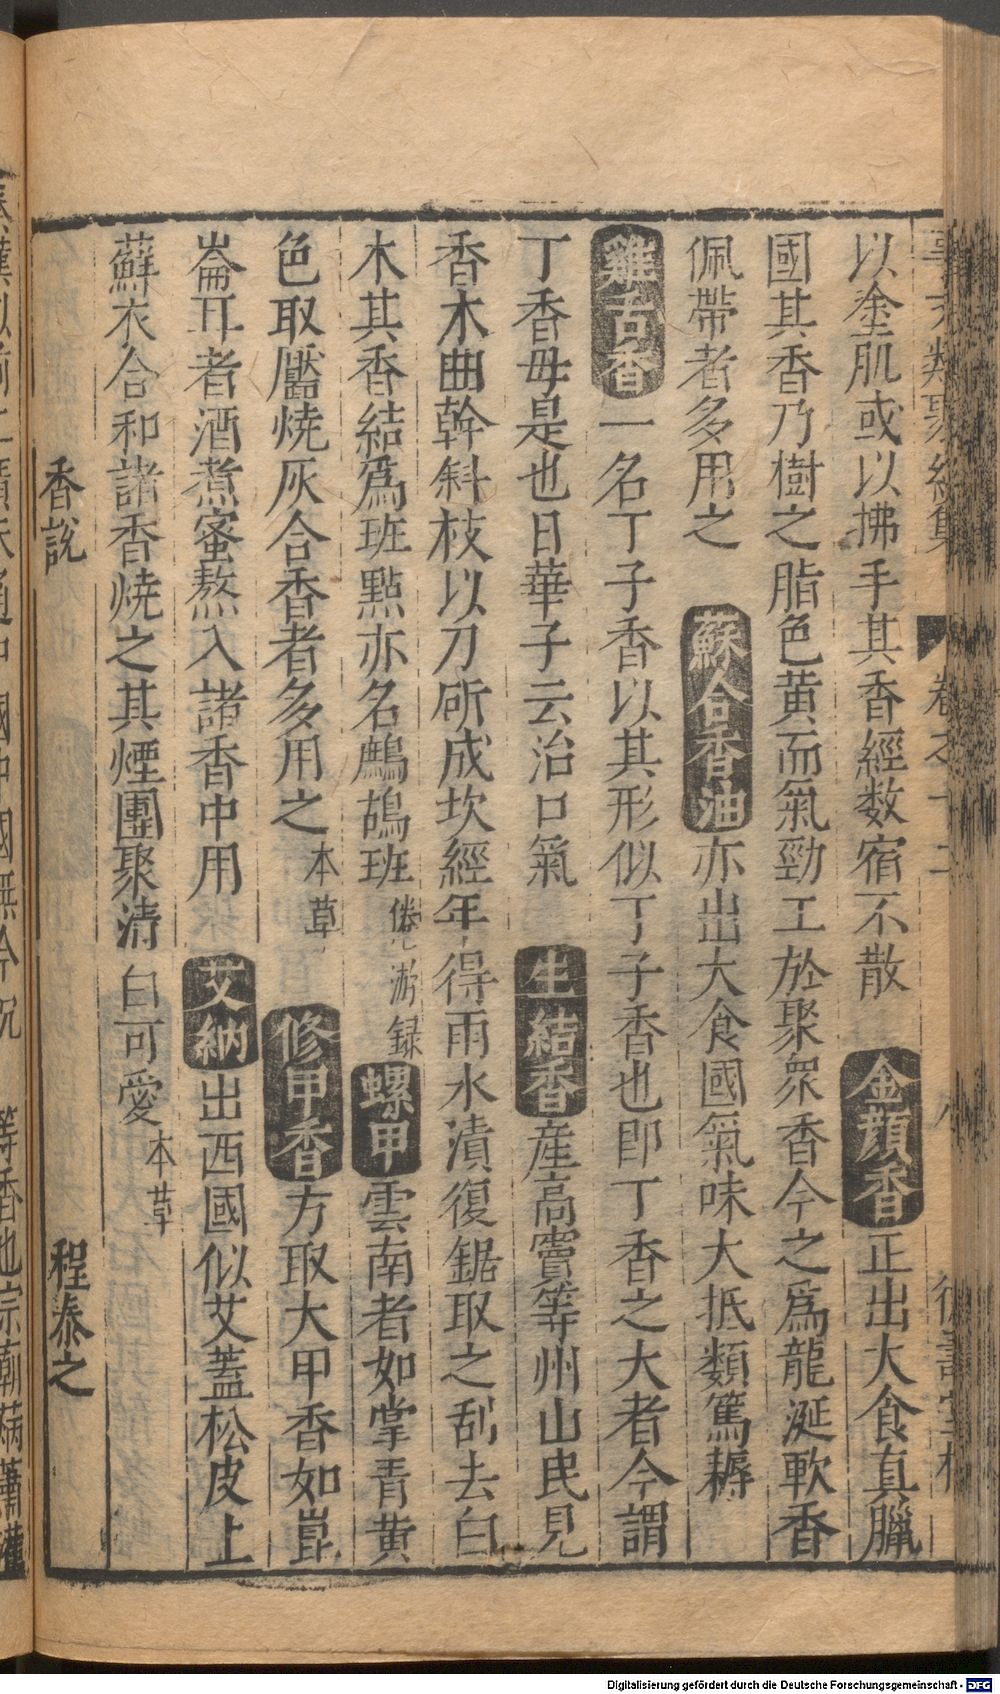 以塗肌或以拂手其香經数宿不散 金顔香 正出大食真臘
國其香乃樹之脂色黄而氣勁工於聚衆香今之爲龍涎軟香
佩帶者多用之 蘇合香油 亦出大食國氣味大抵類篤耨
雞舌香 一名丁子香以其形似丁子香也即丁香之大者今謂
丁香母是也日華子云治口氣 生結香 産高竇等州山民見
香木曲幹斜枝以刀斫成坎經年得雨水漬復鋸取之刮去白
木其香結爲班點亦名鷓鴣班 倦游録 螺甲 雲南者如掌青黄
色取靨燒灰合香者多用之 本草 修甲香 方取大甲香如崑
崙耳者酒煮蜜熬入諸香中用 艾納 出西國似艾蓋松皮上
蘚衣合和諸香燒之其煙團聚清白可愛 本草
香說 程泰之
Digitalisierung gefördert durch die Deutsche Forschungsgemeinschaft - DFG